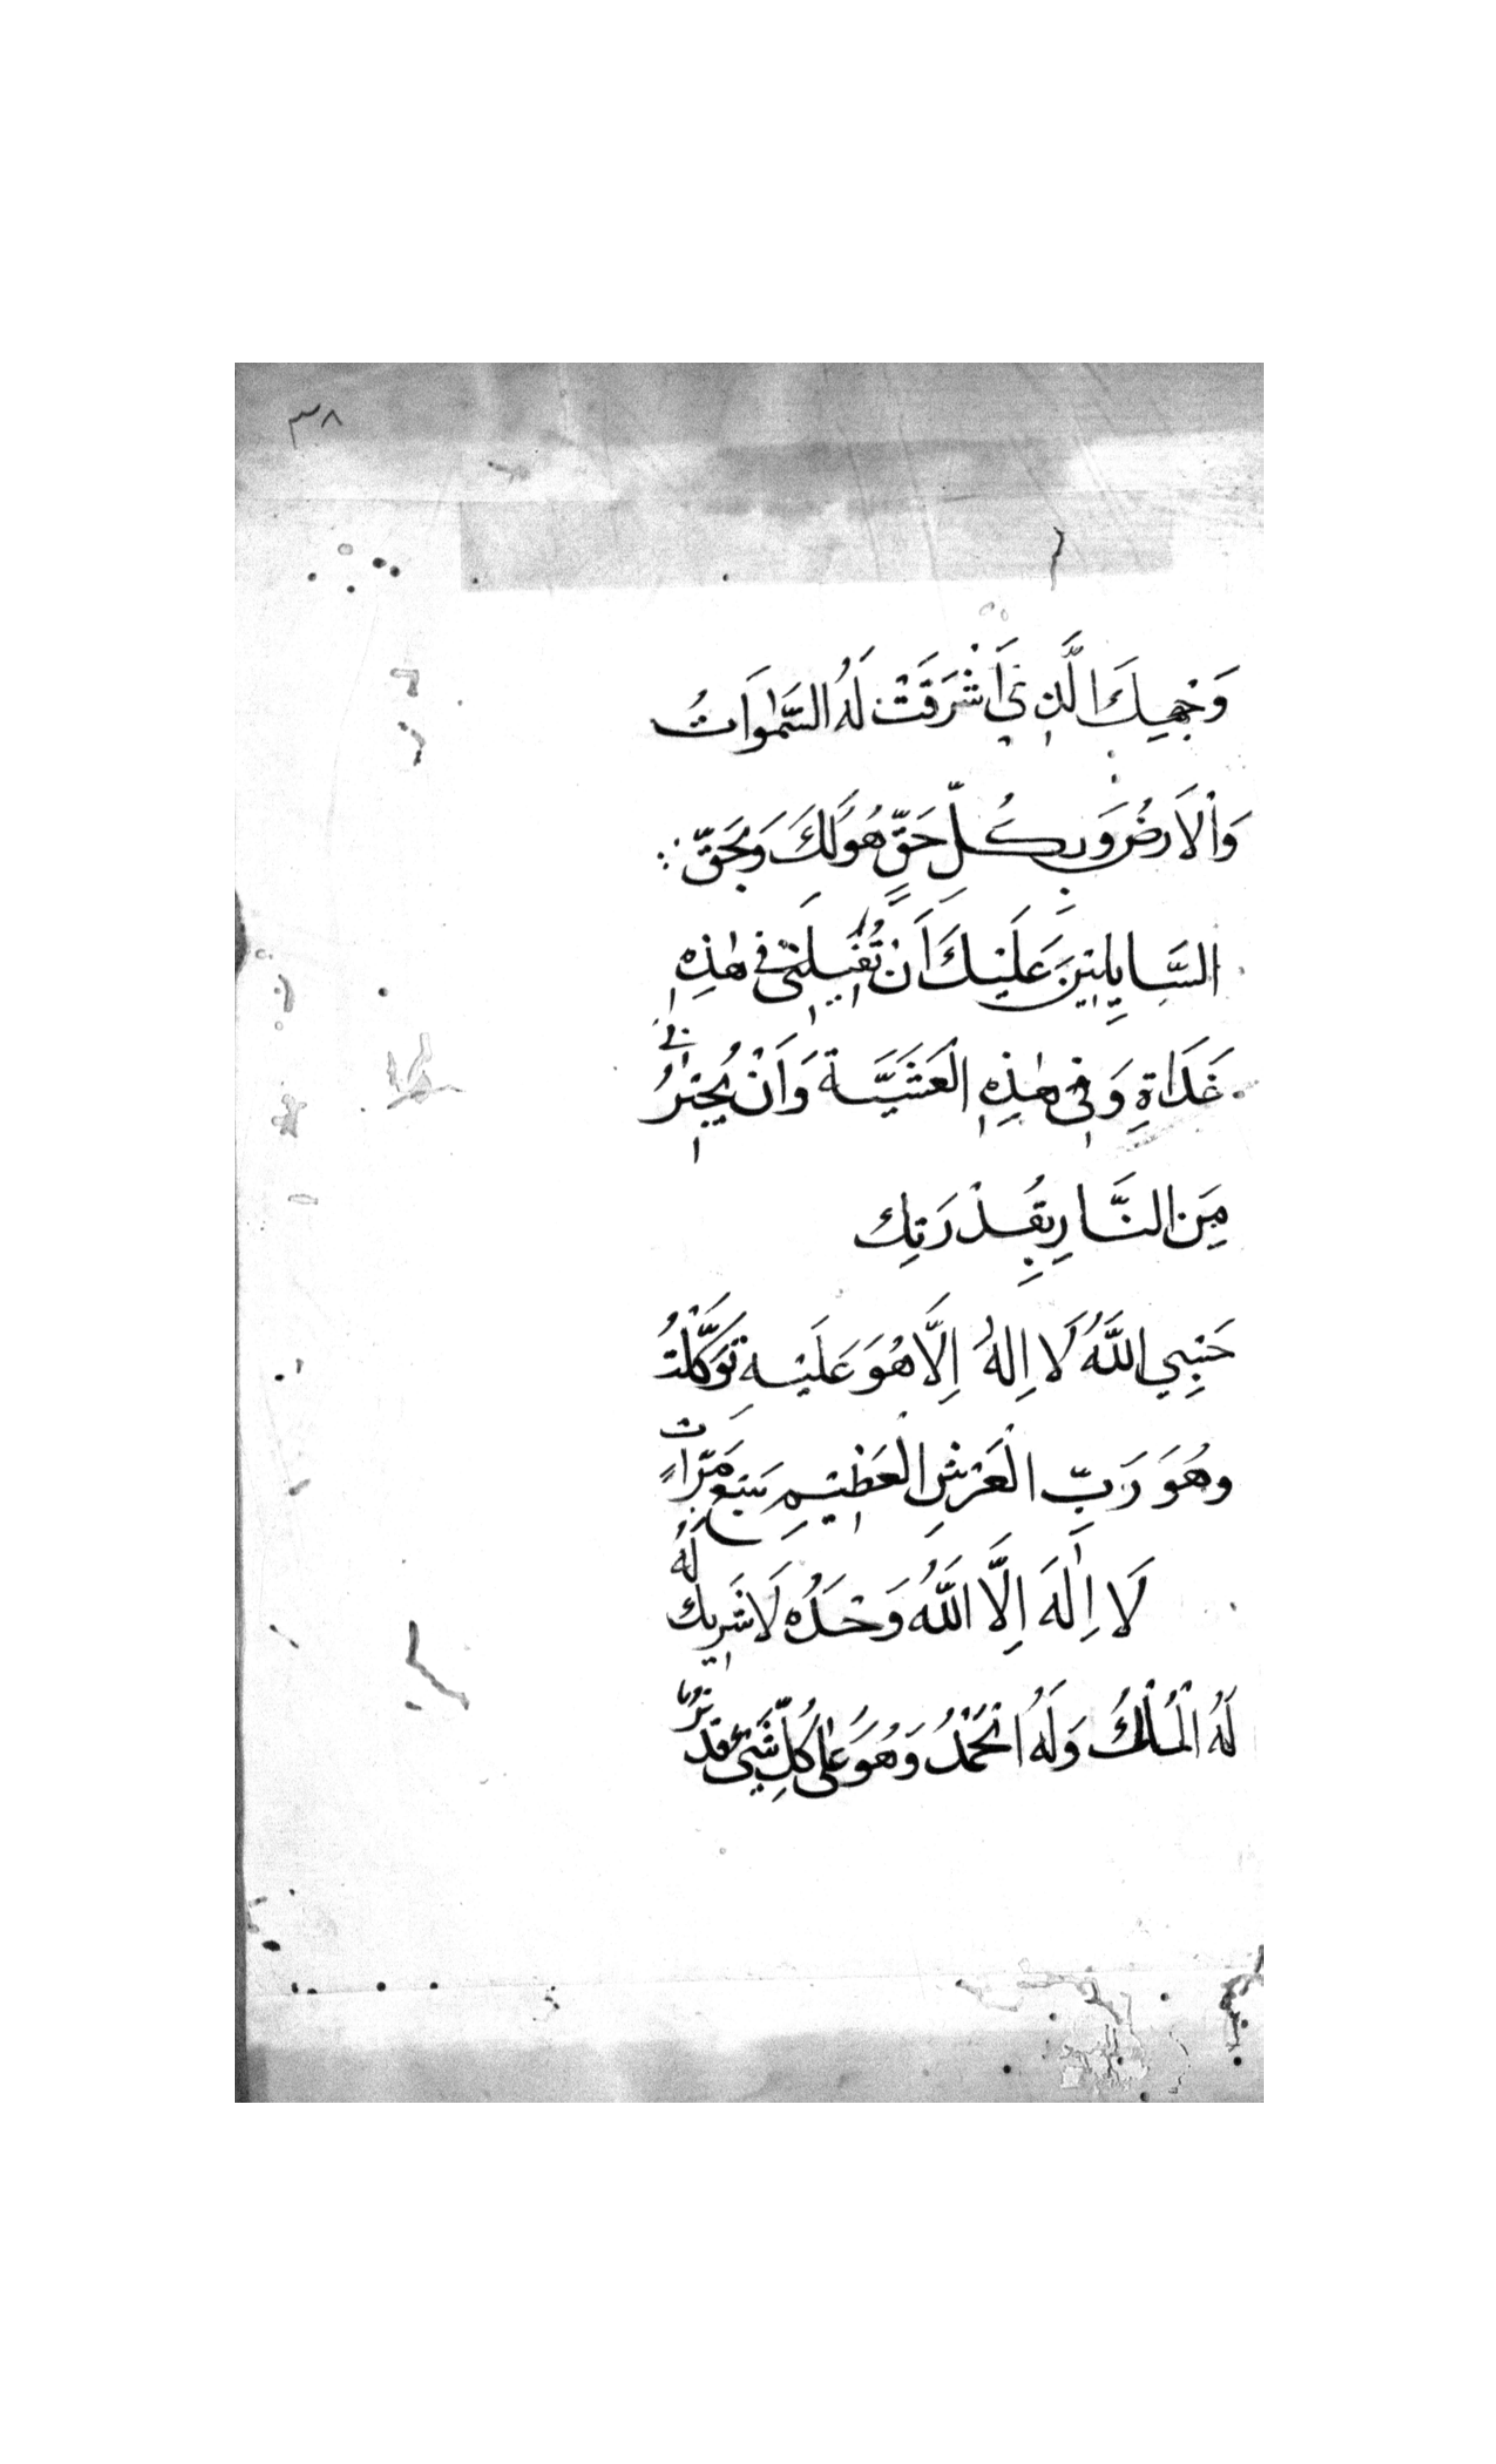 ٣٨
وَجْهِكَ الَّذِي أَشْرَقَتْ لَهُ السَّمٰوَاتُ
وَالْاَرْضُ وَبِكُلِّ حَقٍّ هُوَ لَكَ وَبِحَقِّ
السَّايِلِينَ عَلَيْكَ اَنْ تُقِيلَنِي فِي هٰذِهِ
غَدَاةِ وَفِي هٰذِهِ الْعَشِيَّةِ وَاَنْ تُجِيرَنِي
مِنَ النَّارِ بِقُدْرَتِكَ
حَسْبِيَ اللّٰهُ لَا اِلٰهَ اِلَّا هُوَ عَلَيْهِ تَوَكَّلْتُ
وَهُوَ رَبُّ الْعَرْشِ الْعَظِيمِ سَبْعَ مَرَّاتٍ
لَا اِلٰهَ اِلَّا اللّٰهُ وَحْدَهُ لَا شَرِيكَ لَهُ
لَهُ الْمُلْكُ وَلَهُ الْحَمْدُ وَهُوَ عَلٰى كُلِّ شَيْءٍ قَدِيرٌ